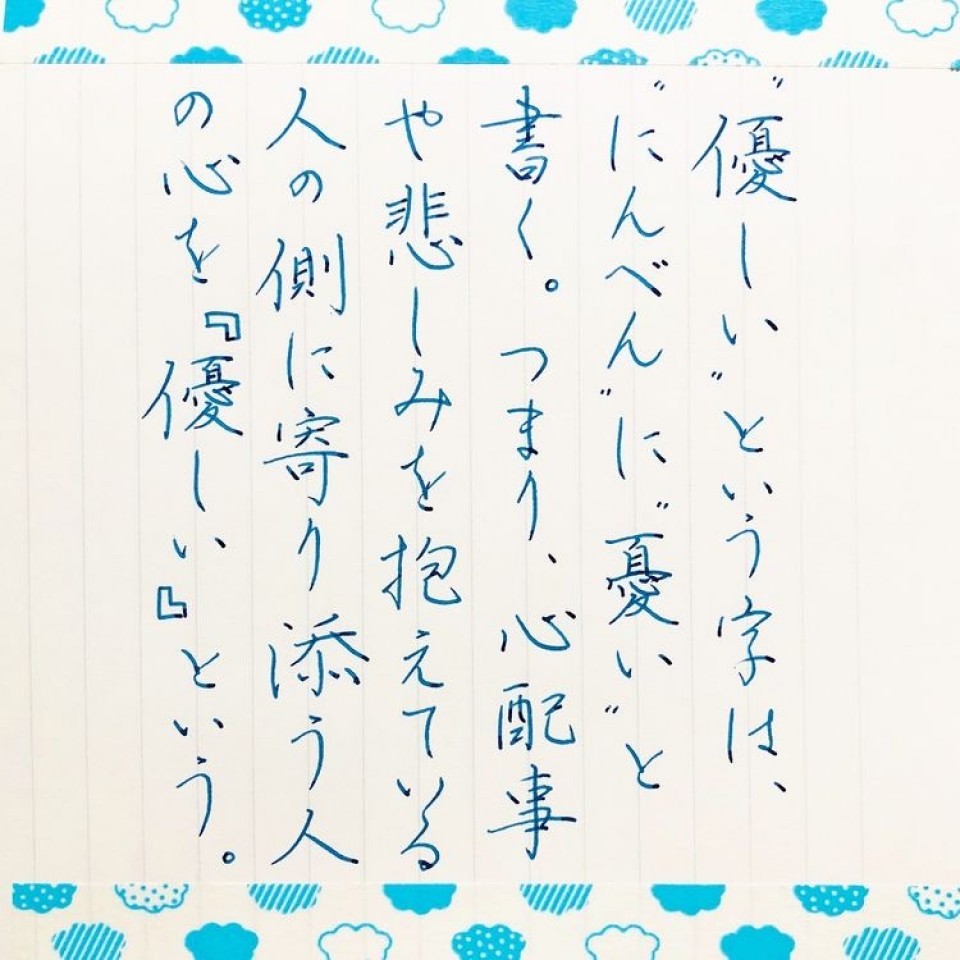 “優しい”という字は、
“にんべん”に“憂い”と
書く。つまり、心配事
や悲しみを抱えている
人の側に寄り添う人
の心を『優しい』という。